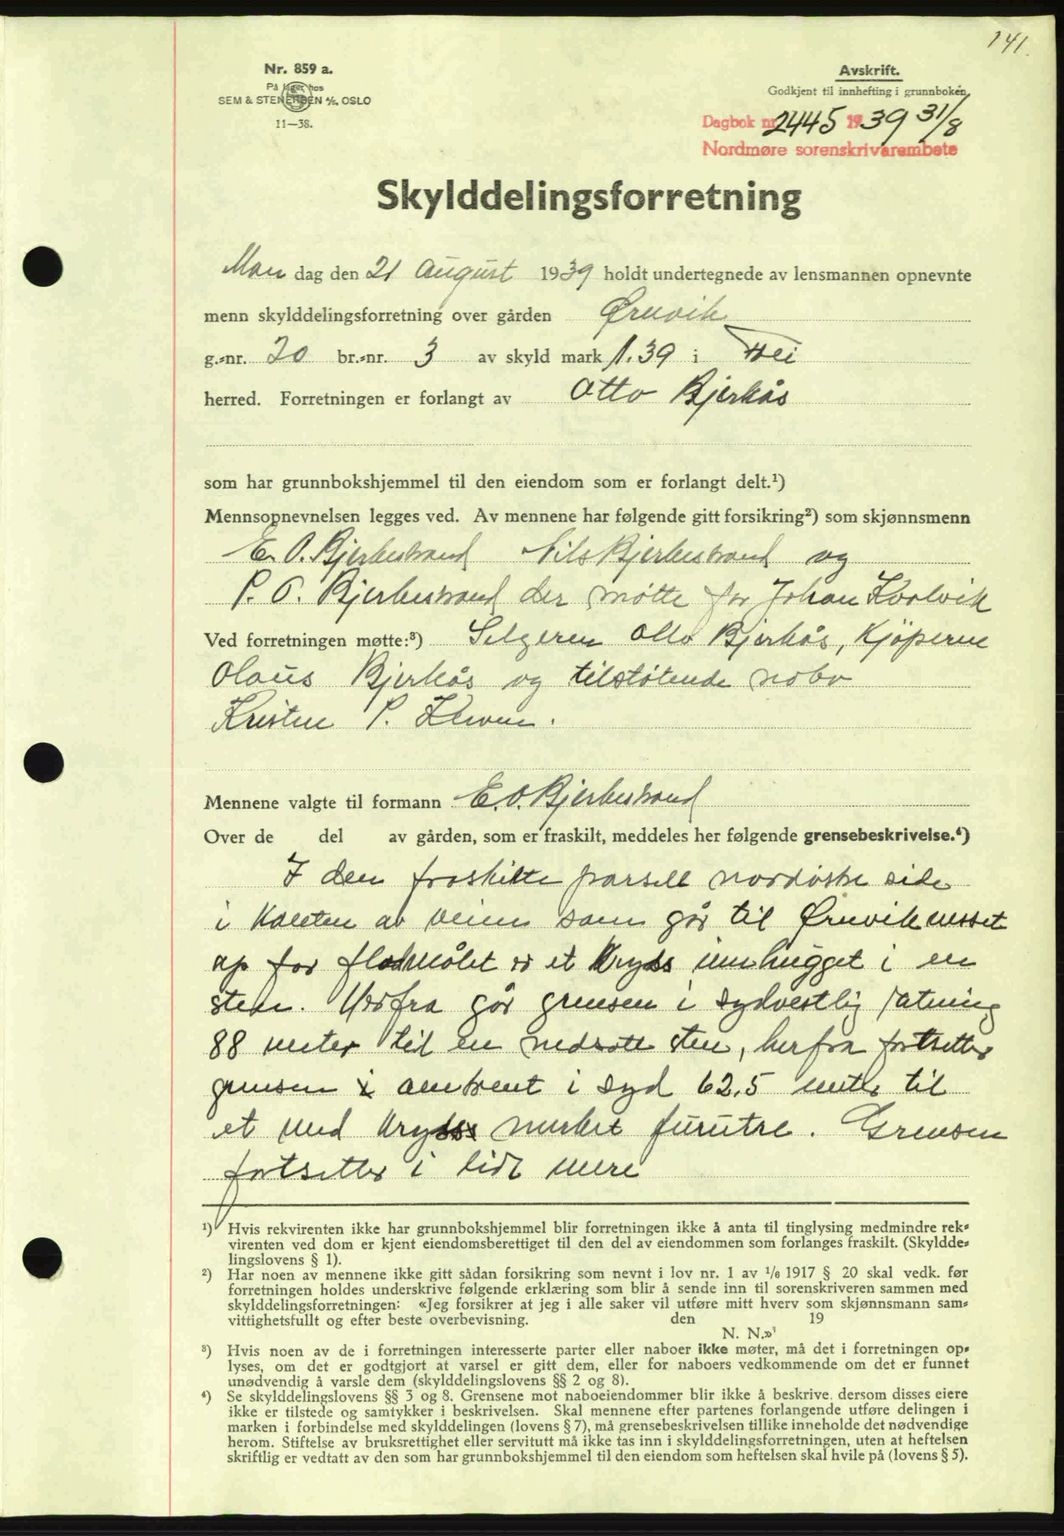 141.
Nr. 859 a.
På lager hos
SEM & STENERSEN A/S. OSLO
11—38.
Avskrift.
Godkjent til innhefting i grunnboken
Dagbok nr 2445 1939 31/8
Nordmøre sorenskriverembete
Skylddelingsforretning
Man dag den 21 August 1939 holdt undertegnede av lensmannen opnevnte
menn skylddelingsforretning over gården Ørnvik
g.-nr. 20 br.-nr. 3 av skyld mark 1.39 i Frei
herred. Forretningen er forlangt av Otto Bjerkås
som har grunnbokshjemmel til den eiendom som er forlangt delt.¹)
Mennsopnevnelsen legges ved. Av mennene har følgende gitt forsikring²) som skjønnsmenn
E. O. Bjerkestrand Nils Bjerkestrand og
P. O. Bjerkestrand der møtte for Johan Kvolvik
Ved forretningen møtte:³) Selgeren Otto Bjerkås, Kjøperne
Olaus Bjerkås og tilstøtende nabo
Kristen P.
Mennene valgte til formann E. O. Bjerkestrand
Over de del av gården, som er fraskilt, meddeles her følgende grensebeskrivelse.⁴)
I den fraskilte parsell nordøstre side
i kanten av veien som går til Ørnvik
op for flodmålet er et kryss innhugget i en
sten. Herfra går grensen i sydvestlig retning
88 meter til en nedsatt sten, herfra fortsetter
grensen i omtrent i syd 62,5 meter til
et med kryss merket furutre. Grensen
fortsetter i litt mere
¹) Hvis rekvirenten ikke har grunnbokshjemmel blir forretningen ikke å anta til tinglysing medmindre rek-
virenten ved dom er kjent eiendomsberettiget til den del av eiendommen som forlanges fraskilt. (Skyldde-
lingslovens § 1).
²) Har noen av mennene ikke gitt sådan forsikring som nevnt i lov nr. 1 av 1/6 1917 § 20 skal vedk. før
forretningen holdes underskrive følgende erklæring som blir å sende inn til sorenskriveren sammen med
skylddelingsforretningen: «Jeg forsikrer at jeg i alle saker vil utføre mitt hverv som skjønnsmann sam-
vittighetsfullt og efter beste overbevisning. den 19
N. N.»
³) Hvis noen av de i forretningen interesserte parter eller naboer ikke møter, må det i forretningen op-
lyses, om det er godtgjort at varsel er gitt dem, eller for naboers vedkommende om det er funnet
unødvendig å varsle dem (skylddelingslovens §§ 2 og 8).
⁴) Se skylddelingslovens §§ 3 og 8. Grensene mot naboeiendommer blir ikke å beskrive, dersom disses eiere
ikke er tilstede og samtykker i beskrivelsen. Skal mennene efter partenes forlangende utføre delingen i
marken i forbindelse med skylddelingen (lovens § 7), må grensebeskrivelsen tillike inneholde det nødvendige
herom. Stiftelse av bruksrettighet eller servitutt må ikke tas inn i skylddelingsforretningen, uten at heftelsen
skriftlig er vedtatt av den som har grunnbokshjemmel til den eiendom som heftelsen skal hvile på (lovens § 5).